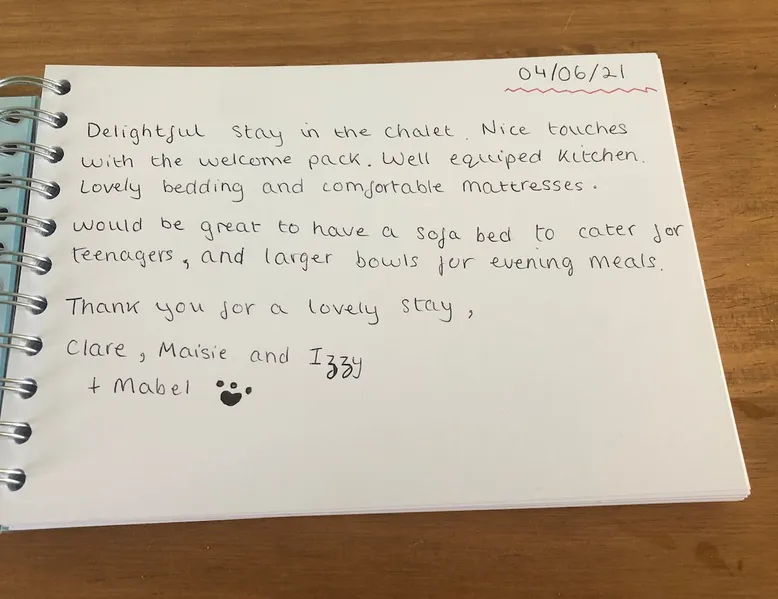 04/06/21
Delightful stay in the chalet. Nice touches
with the welcome pack. Well equiped kitchen.
Lovely bedding and comfortable mattresses.
would be great to have a sofa bed to cater for
teenagers, and larger bowls for evening meals.
Thank you for a lovely stay,
Clare, Maisie and Izzy
+ Mabel